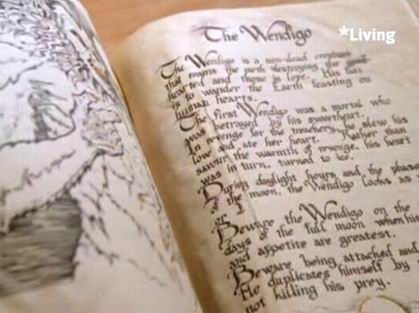 The Wendigo
*Living
The Wendigo is a non-dead creature
that roams the earth destroying the good
hearted and those in love. His
is to wander the Earth feasting on
human hearts.
The first Wendigo was a mortal who
was betrayed by his sweetheart.
in revenge for the treachery, he slew his
love and ate her heart. Rather than
savour the warmth of revenge, his heart
was in turn, turned to ice.
During daylight hours and the phases
of the moon, the Wendigo looks as
Beware the Wendigo on the
days of the full moon when
and appetite are greatest.
Beware being attacked
He duplicates himself by
not killing his prey.